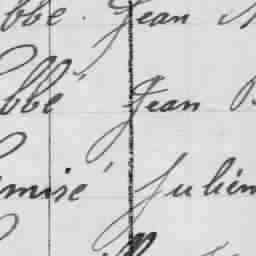 bbé. Jean
bbé Jean
misé Julien